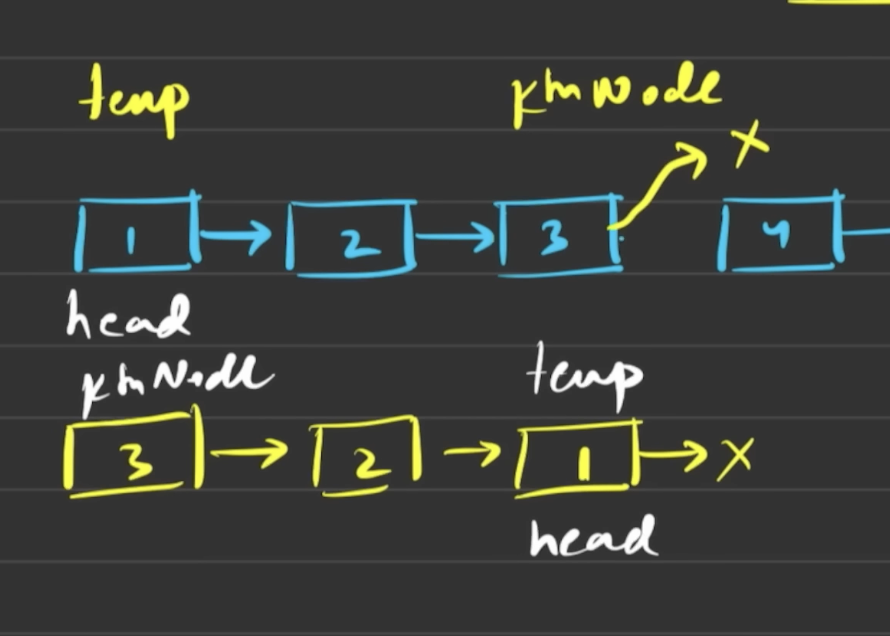 temp KthNode
X
1 2 3 4
head
KthNode temp
3 2 1 X
head